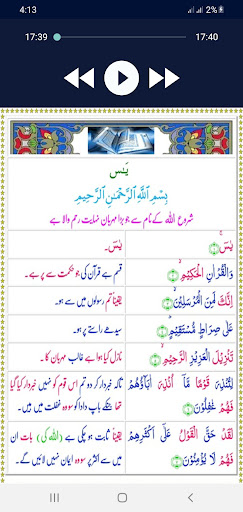 4:13 2%
17:39 17:40
يٰسٓ
بِسْمِ اللّٰهِ الرَّحْمٰنِ الرَّحِيْمِ
شروع اللہ کے نام سے جو بڑا مہربان نہایت رحم والا ہے
يٰسٓ ۚ﴿۱﴾
يٰس۔
وَالْقُرْاٰنِ الْحَكِيْمِ ۙ﴿۲﴾
قسم ہے قرآن کی جو حکمت سے پر ہے۔
اِنَّكَ لَمِنَ الْمُرْسَلِيْنَ ۙ﴿۳﴾
یقیناً تم رسولوں میں سے ہو۔
عَلٰى صِرَاطٍ مُّسْتَقِيْمٍ ؕ﴿۴﴾
سیدھے راستے پر ہو۔
تَنْزِيْلَ الْعَزِيْزِ الرَّحِيْمِ ۙ﴿۵﴾
نازل کیا ہوا ہے غالب مہربان کا۔
لِتُنْذِرَ قَوْمًا مَّاۤ اُنْذِرَ اٰبَآؤُهُمْ
فَهُمْ غٰفِلُوْنَ ﴿۶﴾
تاکہ خبردار کردو تم اس قوم کو نہیں خبردار کیا گیا
جنکے باپ دادا کو سو وہ غفلت میں ہیں۔
لَقَدْ حَقَّ الْقَوْلُ عَلٰۤى اَكْثَرِهِمْ
فَهُمْ لَا يُؤْمِنُوْنَ ﴿۷﴾
یقیناً ثابت ہو چکی ہے (اللہ کی) بات ان
میں سے اکثر پر سو وہ ایمان نہیں لائیں گے۔